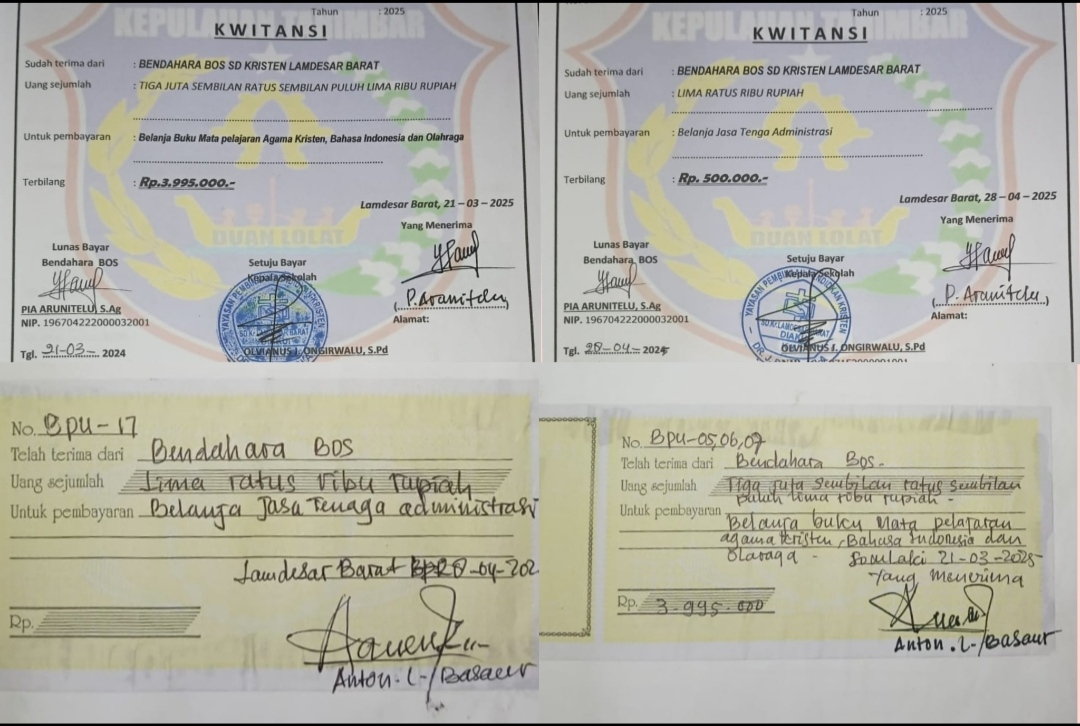 KEPULAUAN TANIMBAR
Tahun : 2025
KWITANSI
Sudah terima dari : BENDAHARA BOS SD KRISTEN LAMDESAR BARAT
Uang sejumlah : TIGA JUTA SEMBILAN RATUS SEMBILAN PULUH LIMA RIBU RUPIAH
Untuk pembayaran : Belanja Buku Mata pelajaran Agama Kristen, Bahasa Indonesia dan Olahraga
Terbilang : Rp.3.995.000.-
DUAN LOLAT
Lamdesar Barat, 21 – 03 – 2025
Yang Menerima
Lunas Bayar
Bendahara BOS
Setuju Bayar
Kepala Sekolah
PIA ARUNITELU, S.Ag
NIP. 196704222000032001
(P. Arunitelu)
Alamat:
Tgl. 21-03-. 2024
OLVIANUS J. ONGIRWALU, S.Pd
KEPULAUAN TANIMBAR
Tahun : 2025
KWITANSI
Sudah terima dari : BENDAHARA BOS SD KRISTEN LAMDESAR BARAT
Uang sejumlah : LIMA RATUS RIBU RUPIAH
Untuk pembayaran : Belanja Jasa Tenga Administrasi
Terbilang : Rp. 500.000.-
DUAN LOLAT
Lamdesar Barat, 28 – 04 – 2025
Yang Menerima
Lunas Bayar
Bendahara BOS
Setuju Bayar
Kepala Sekolah
PIA ARUNITELU, S.Ag
NIP. 196704222000032001
(P. Arunitelu)
Alamat:
Tgl. 28-04-. 2025
OLVIANUS J. ONGIRWALU, S.Pd
No. BPU-17
Telah terima dari Bendahara BOS
Uang sejumlah Lima ratus ribu rupiah
Untuk pembayaran Belanja Jasa Tenaga administrasi
Lamdesar Barat -04-202
Rp.
Anton. L-/Basaur
No. BPU-05,06,07
Telah terima dari Bendahara Bos-
Uang sejumlah Tiga juta sembilan ratus sembilan
puluh lima ribu rupiah -
Untuk pembayaran
Belanja buku Mata pelajaran
agama kristen, Bahasa Indonesia dan
Olaraga - 21-03-2025
Yang menerima
Rp. 3-995-000
Anton. L-/Basaur